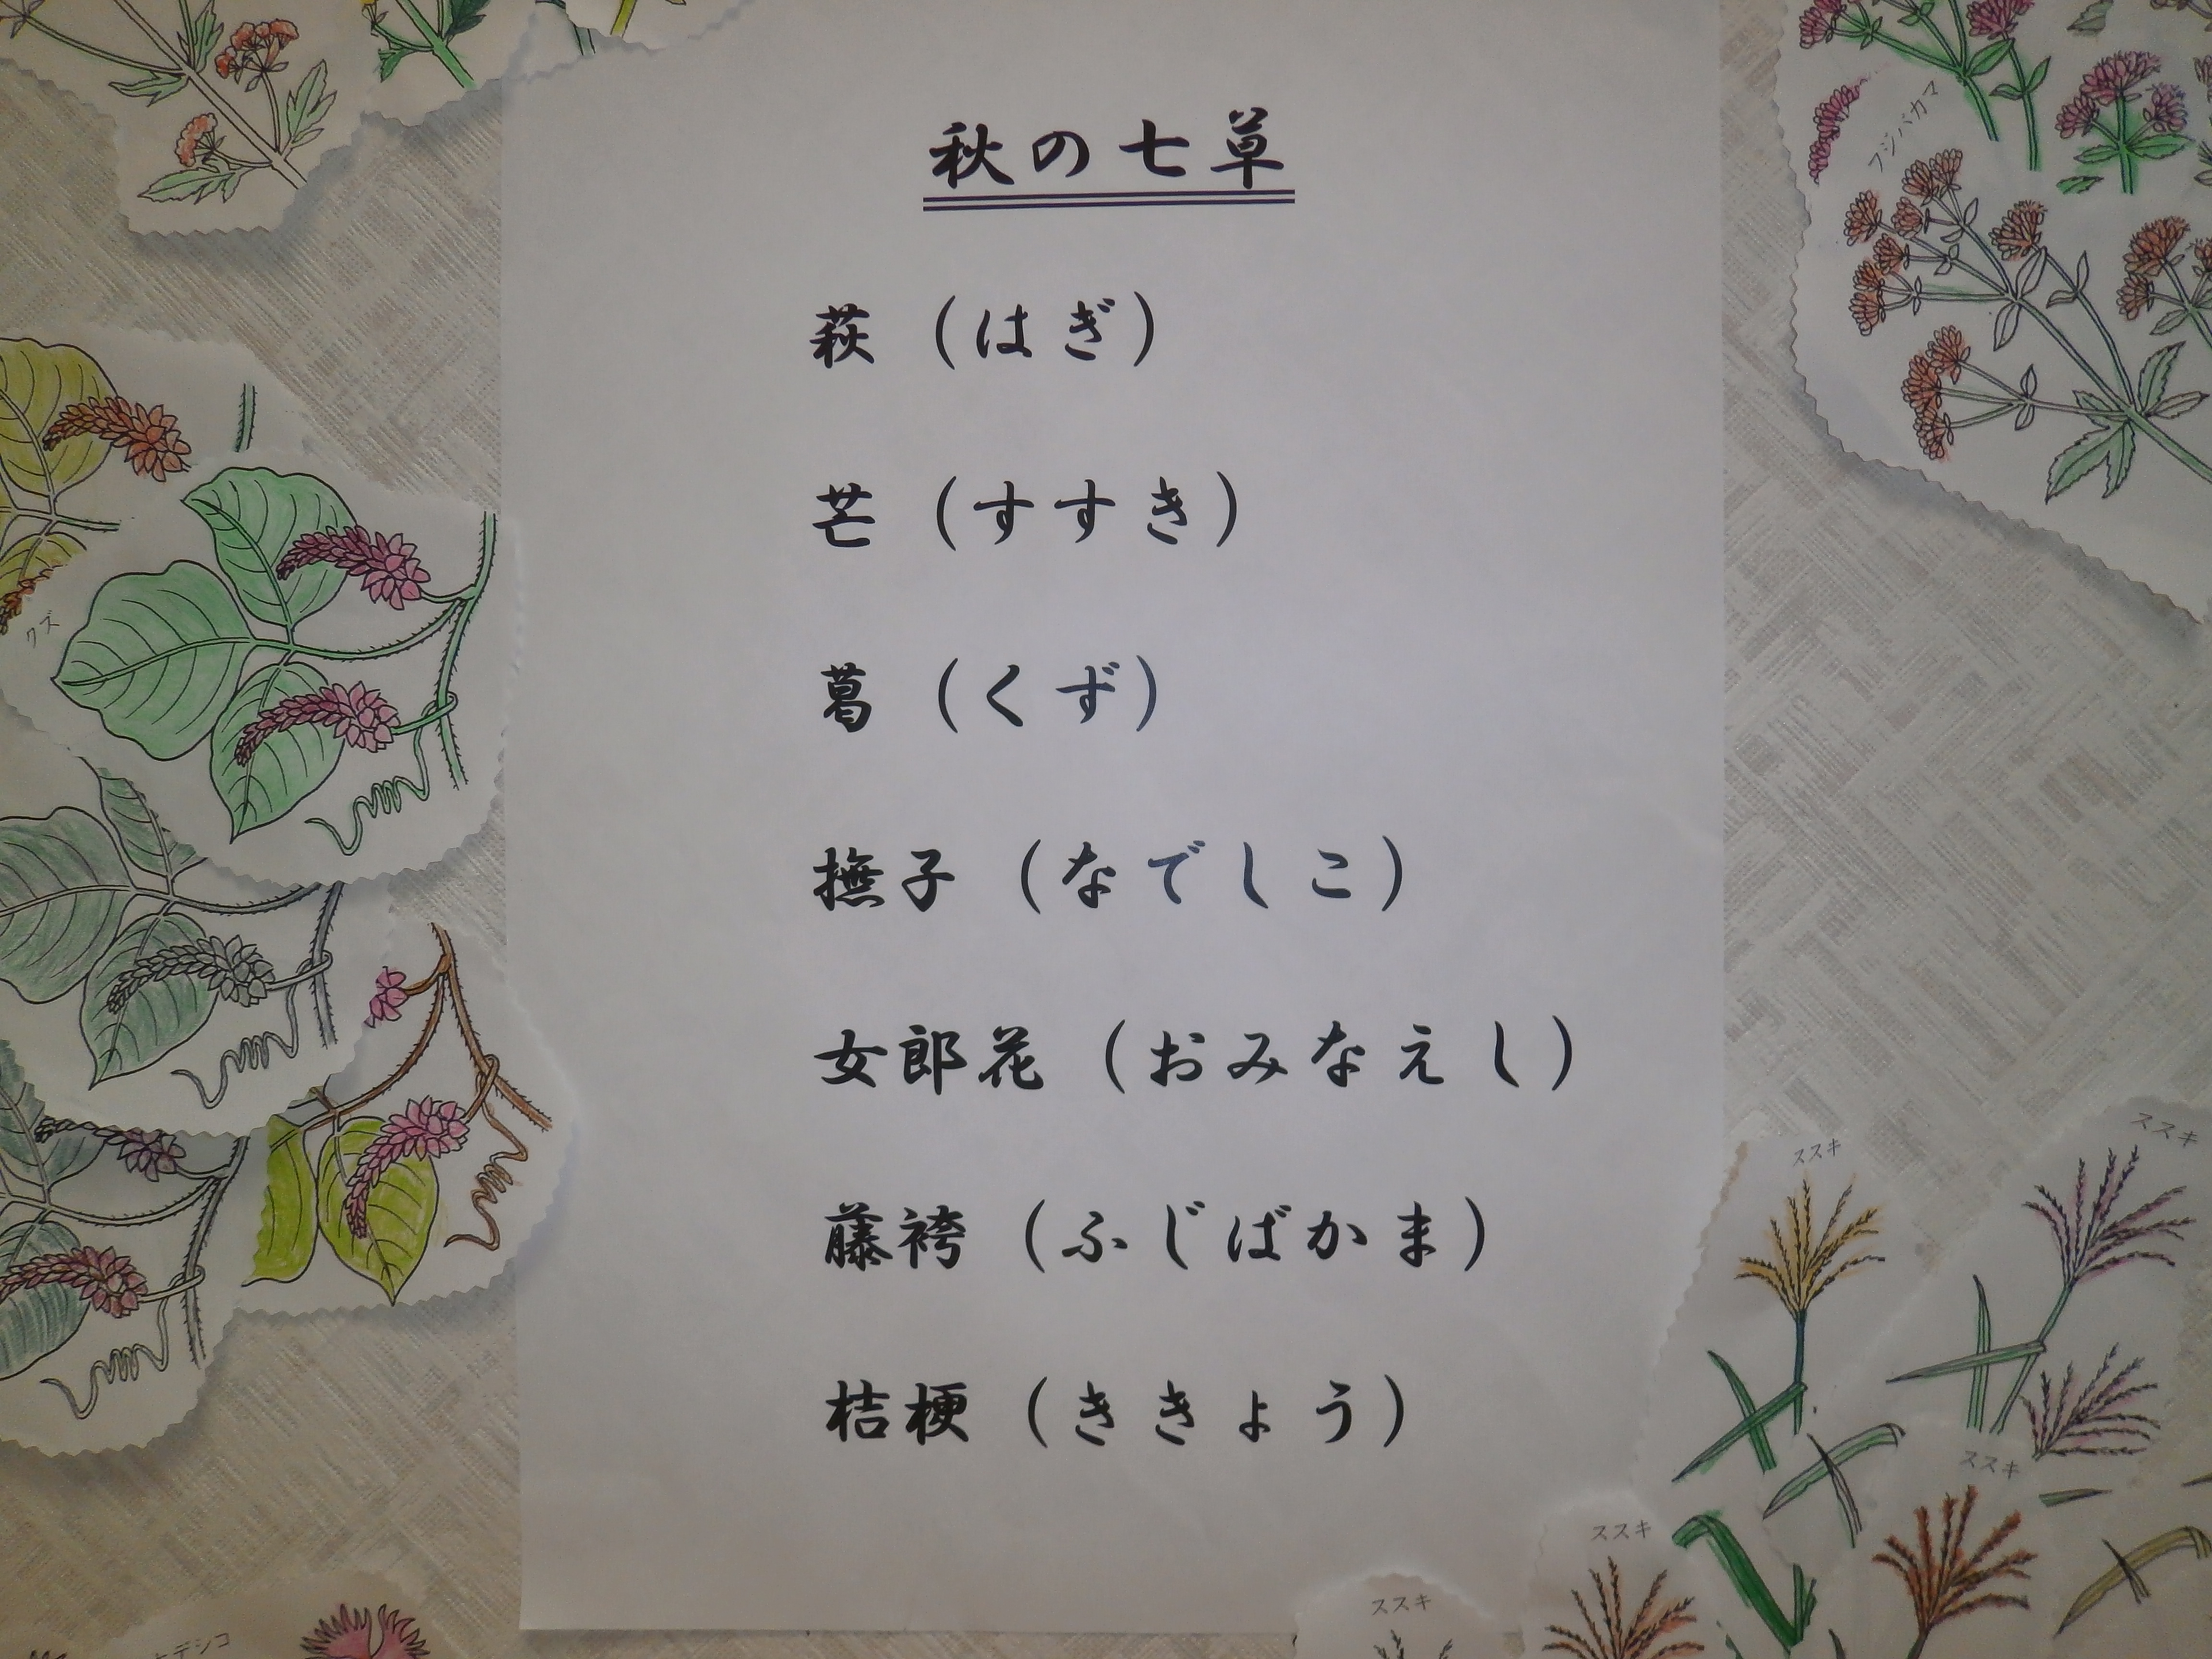 秋の七草
萩（はぎ）
芒（すすき）
葛（くず）
撫子（なでしこ）
女郎花（おみなえし）
藤袴（ふじばかま）
桔梗（ききょう）
フジバカマ
クズ
ススキ
ススキ
ススキ
ススキ
ススキ
デシコ